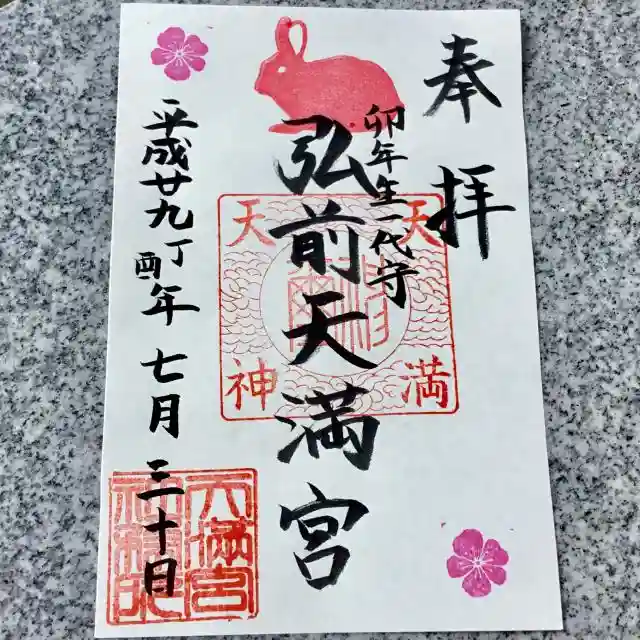 奉拝
卯年生一代守
弘前天満宮
平成廿九丁酉年七月三十日
天満
天神